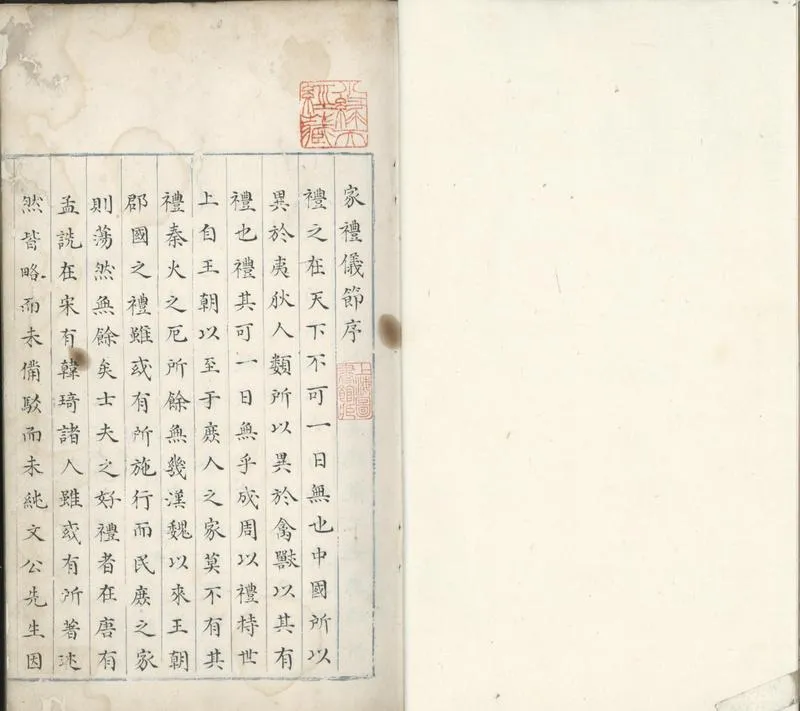 家禮儀節序
上海圖
書館藏
禮之在天下不可一日無也中國所以
異於夷狄人類所以異於禽獸以其有
禮也禮其可一日無乎成周以禮持世
上自王朝以至于庶人之家莫不有其
禮秦火之厄所餘無幾漢魏以來王朝
郡國之禮雖或有所施行而民庶之家
則蕩然無餘矣士夫之好禮者在唐有
孟詵在宋有韓琦諸人雖或有所著述
然皆略而未備駁而未純文公先生因